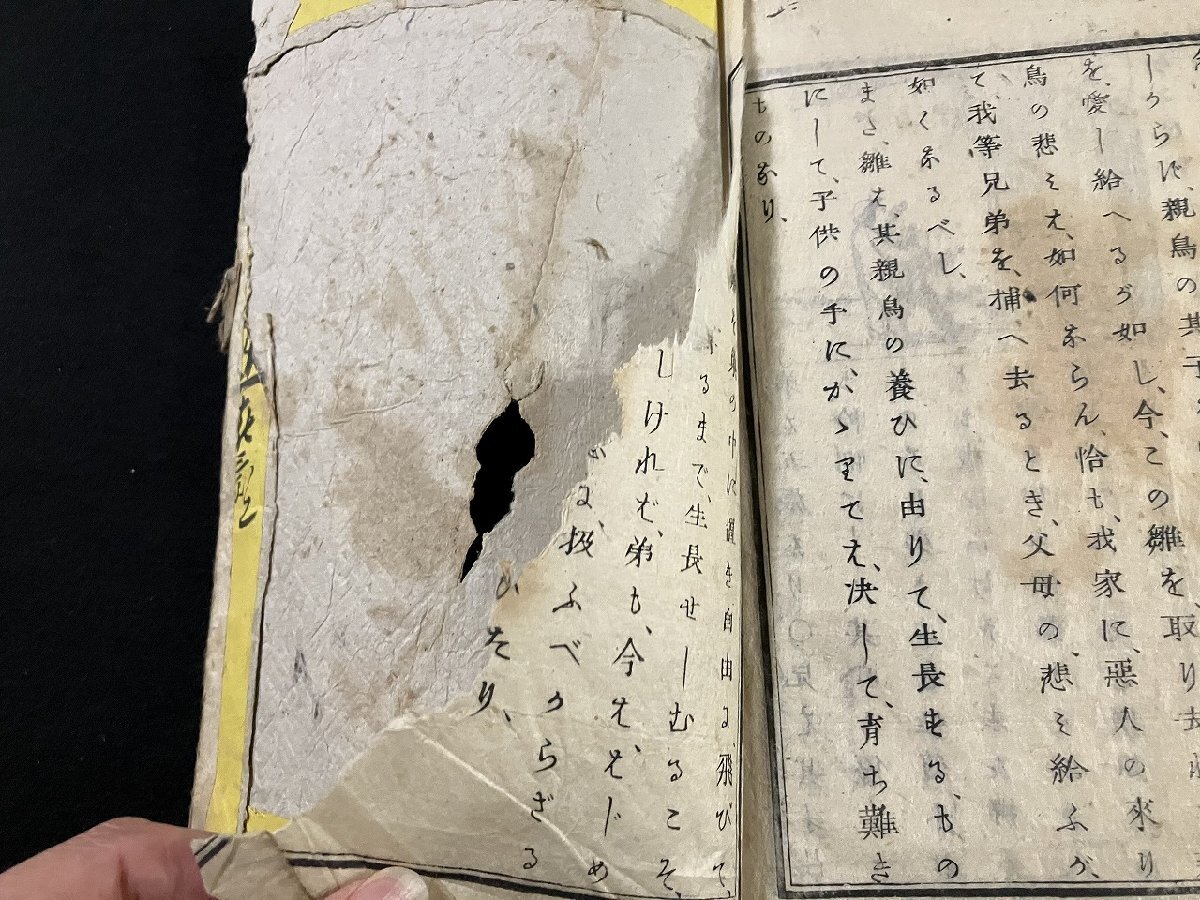 しからバ、親鳥の其子
を、愛し給へるが如し、今、この雛を取り去
鳥の悲ミハ、如何ならん、恰も、我家に、惡人の來り
て、我等兄弟を、捕へ去るとき、父母の悲ミ給ふが、
如くなるべし、
また、雛ハ、其親鳥の養ひに、由りて、生長する、もの
にして、子供の手に、かゝりてハ、決して、育ち難き
ものなり、
巣の中に置き自由に、飛びて、
るまで、生長せしむるこそ、
しけれバ、弟も、今ハ、はじめ
に、扱ふべからざる
たり、